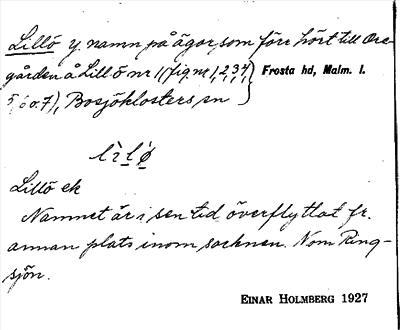 Lillö y. namn på ägor, som förr hört till Ore-
gården å Lillö nr 1 (fig. nr 1, 2, 3, 4, Frosta hd, Malm. l.
5, 6 o. 7), Bosjöklosters sn
lìlǿ
Lillö ek
Namnet är i sen tid överflyttat fr.
annan plats inom socknen. Nom Ring-
sjön.
EINAR HOLMBERG 1927